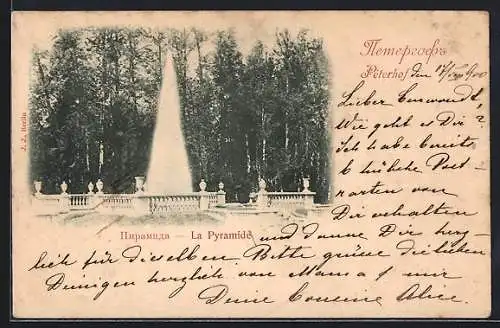 Петергофъ
Peterhof, den 17/
Lieber
Wie geht es Dir?
Ich habe bereits
6 hübsche Post-
karten von
Dir erhalten
J. J. Berlin
Пирамида — La Pyramide
und danke Dir herz-
lich für dieselben. Bitte grüsse die lieben
Deinigen herzlich von Mama & mir
Deine Cousine Alice.